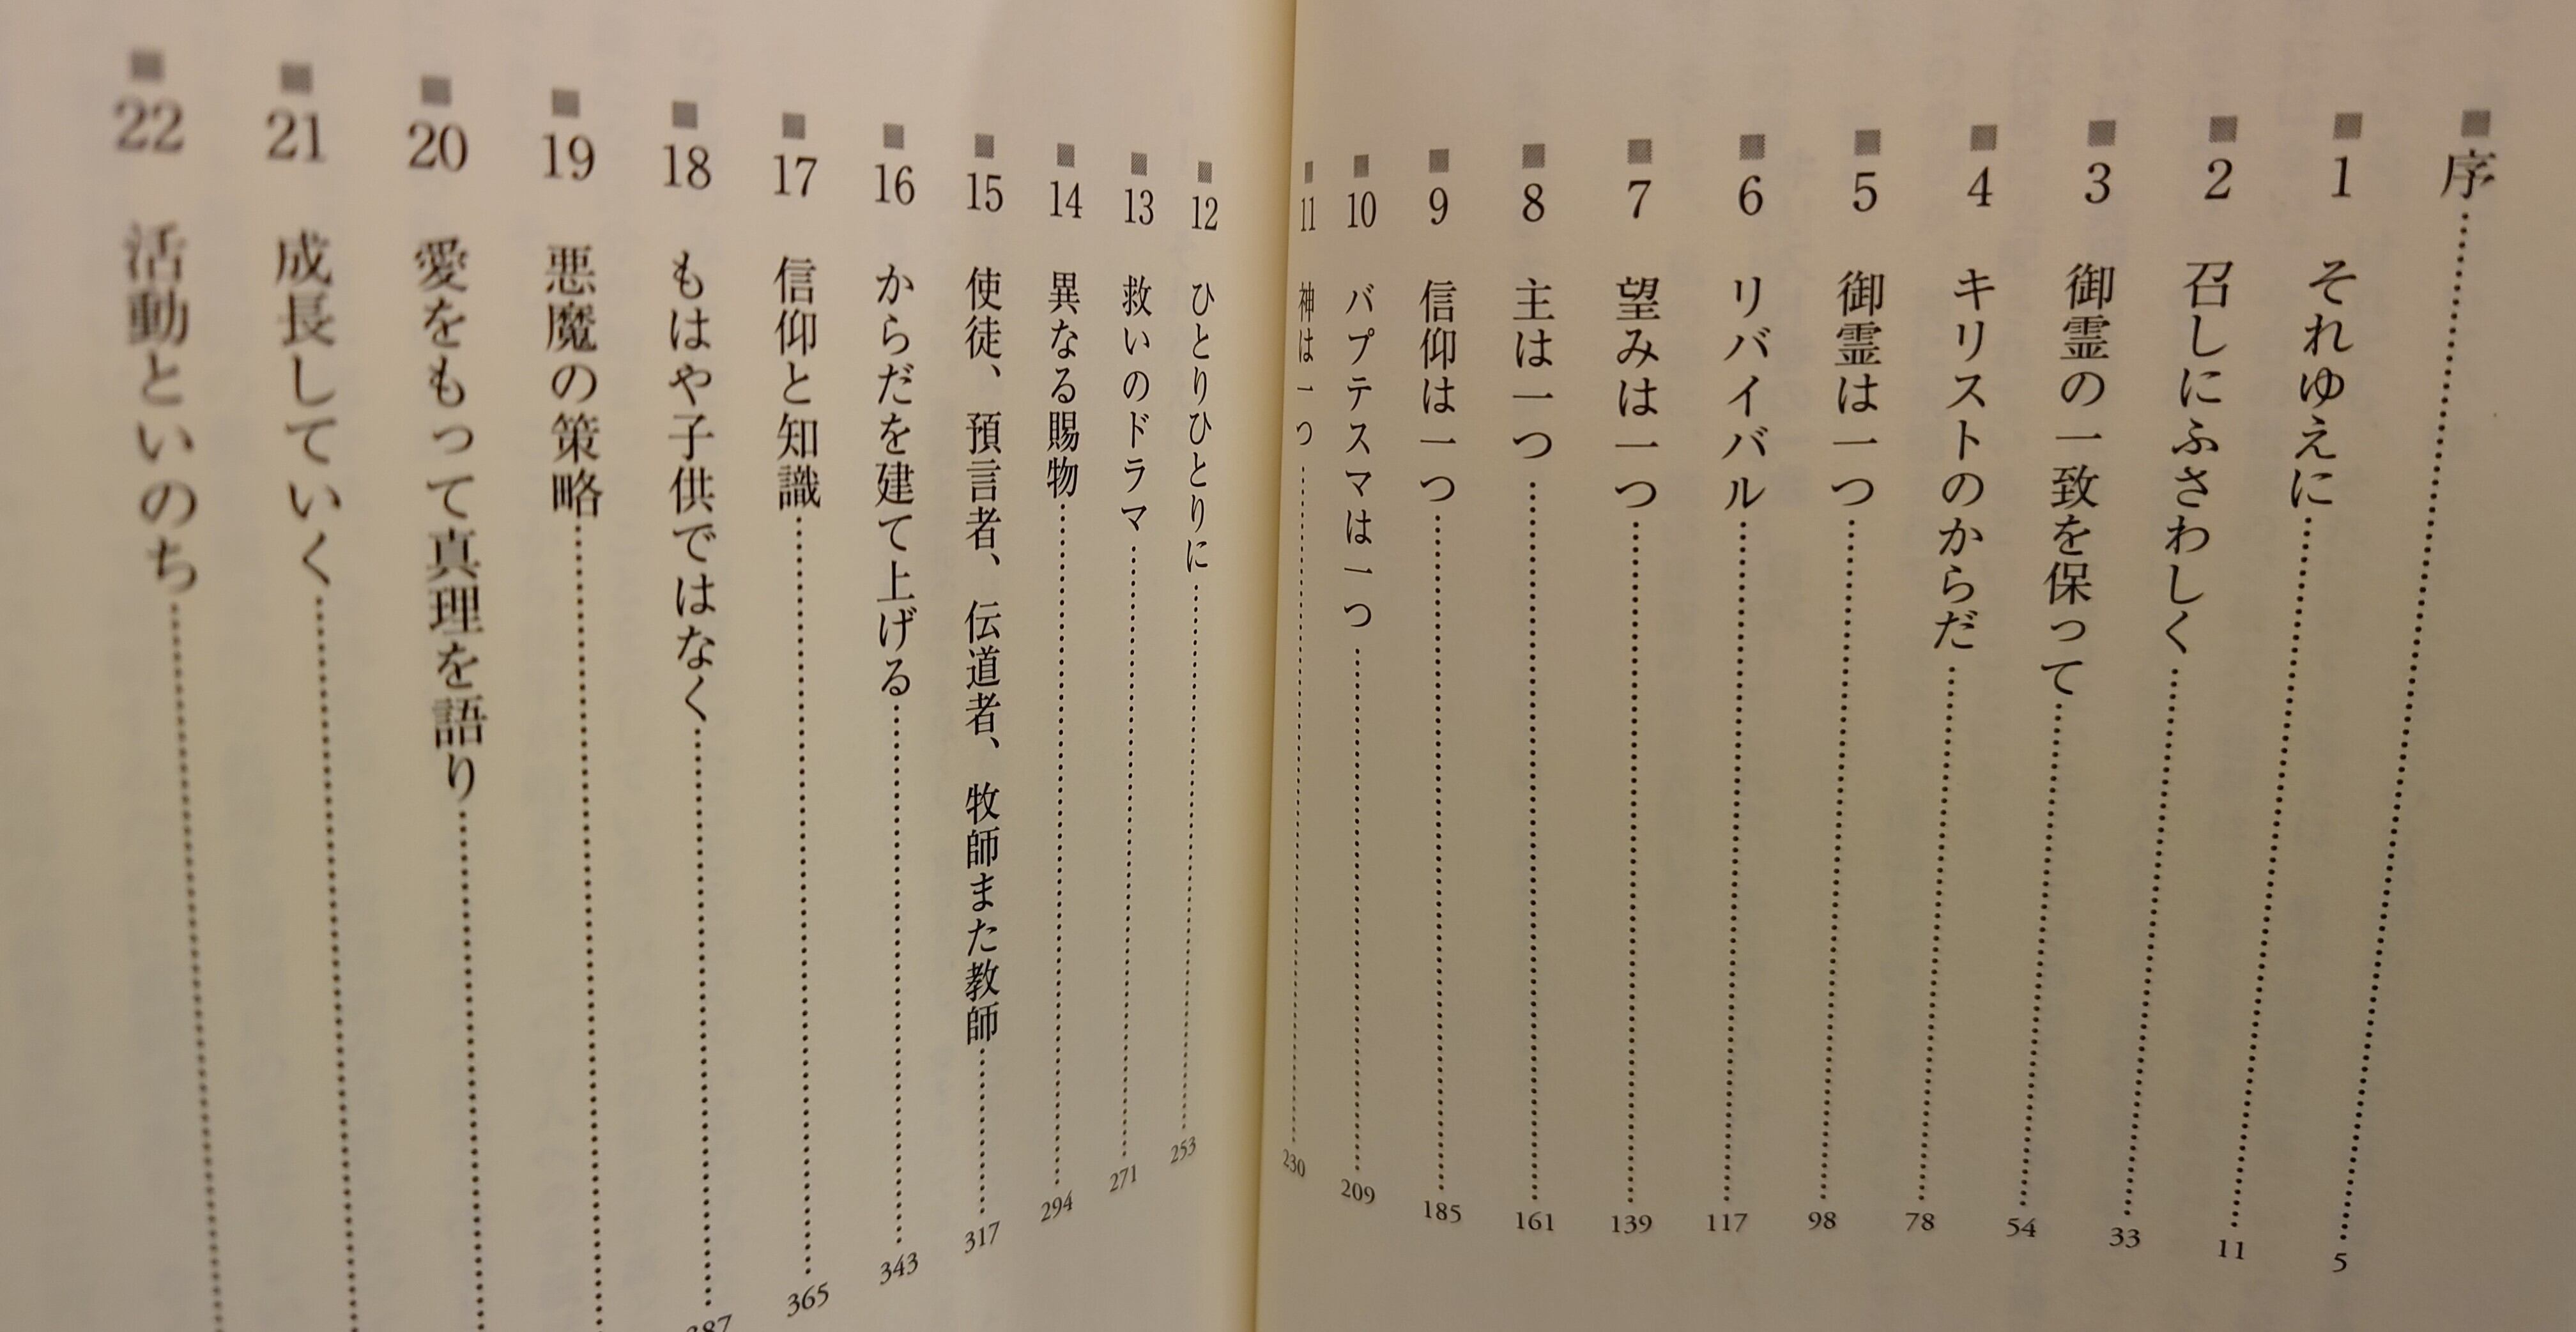 序……5
1 それゆえに……11
2 召しにふさわしく……33
3 御霊の一致を保って……54
4 キリストのからだ……78
5 御霊は一つ……98
6 リバイバル……117
7 望みは一つ……139
8 主は一つ……161
9 信仰は一つ……185
10 バプテスマは一つ……209
11 神は一つ……230
12 ひとりひとりに……253
13 救いのドラマ……271
14 異なる賜物……294
15 使徒、預言者、伝道者、牧師また教師……317
16 からだを建て上げる……343
17 信仰と知識……365
18 もはや子供ではなく……387
19 悪魔の策略……
20 愛をもって真理を語り……
21 成長していく……
22 活動といのち……